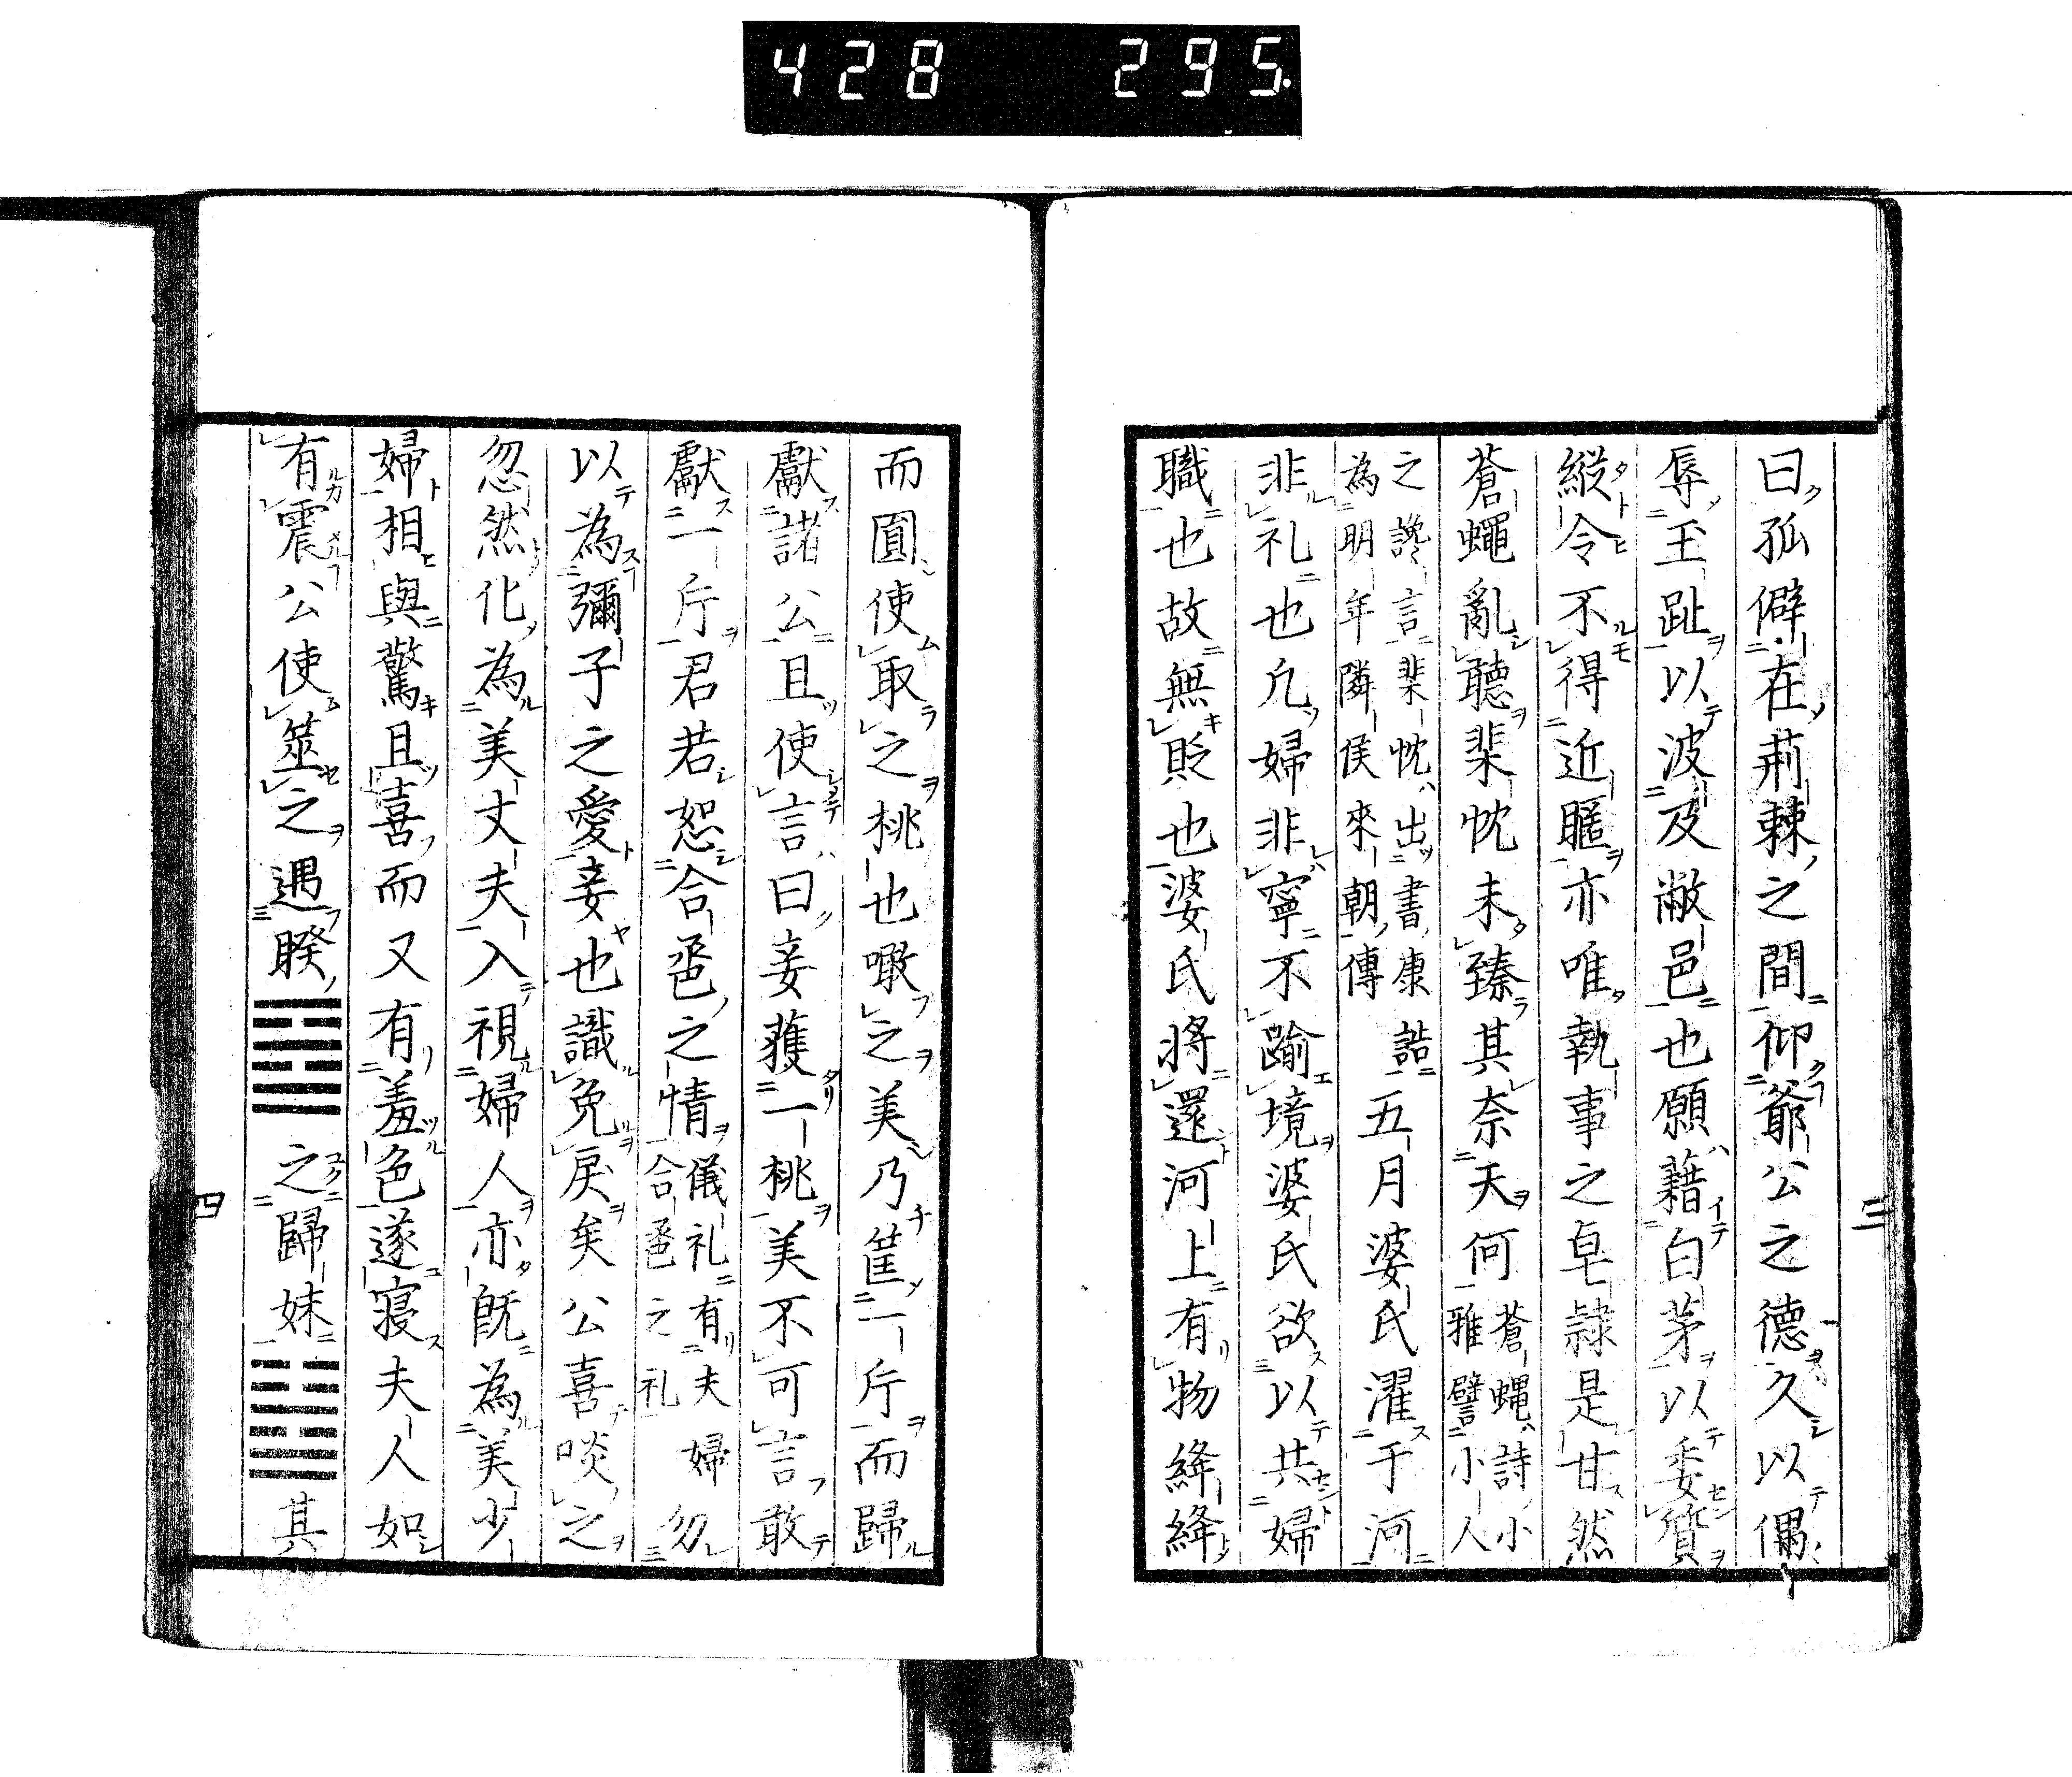 428 295.
三
曰孤僻在荊棘之間仰爺公之德久以偶
辱玉趾以波及敝邑也願藉白茅以委質
縱令不得近䁥亦唯執事之皂隷是甘然
蒼蠅亂聽棐忱未臻其奈天何 蒼蝿詩小
雅譬小人
之讒言棐忱出書康誥
為明年隣侯來朝傳
五月婆氏濯于河
非礼也凡婦非寧不踰境婆氏欲以共婦
職也故無貶也婆氏將還河上有物絳絳
而圓使取之桃也噉之美乃筐一斤而歸
獻諸公且使言曰妾獲一桃美不可言敢
獻一斤君若恕合巹之情 儀礼有夫婦
合巹之礼
勿
以為彌子之愛妾也識免戾矣公喜啖之
忽然化為美丈夫入視婦人亦既為美少
婦相與驚且喜而又有羞色遂寝夫人如
有震公使筮之遇睽之歸妹其
四